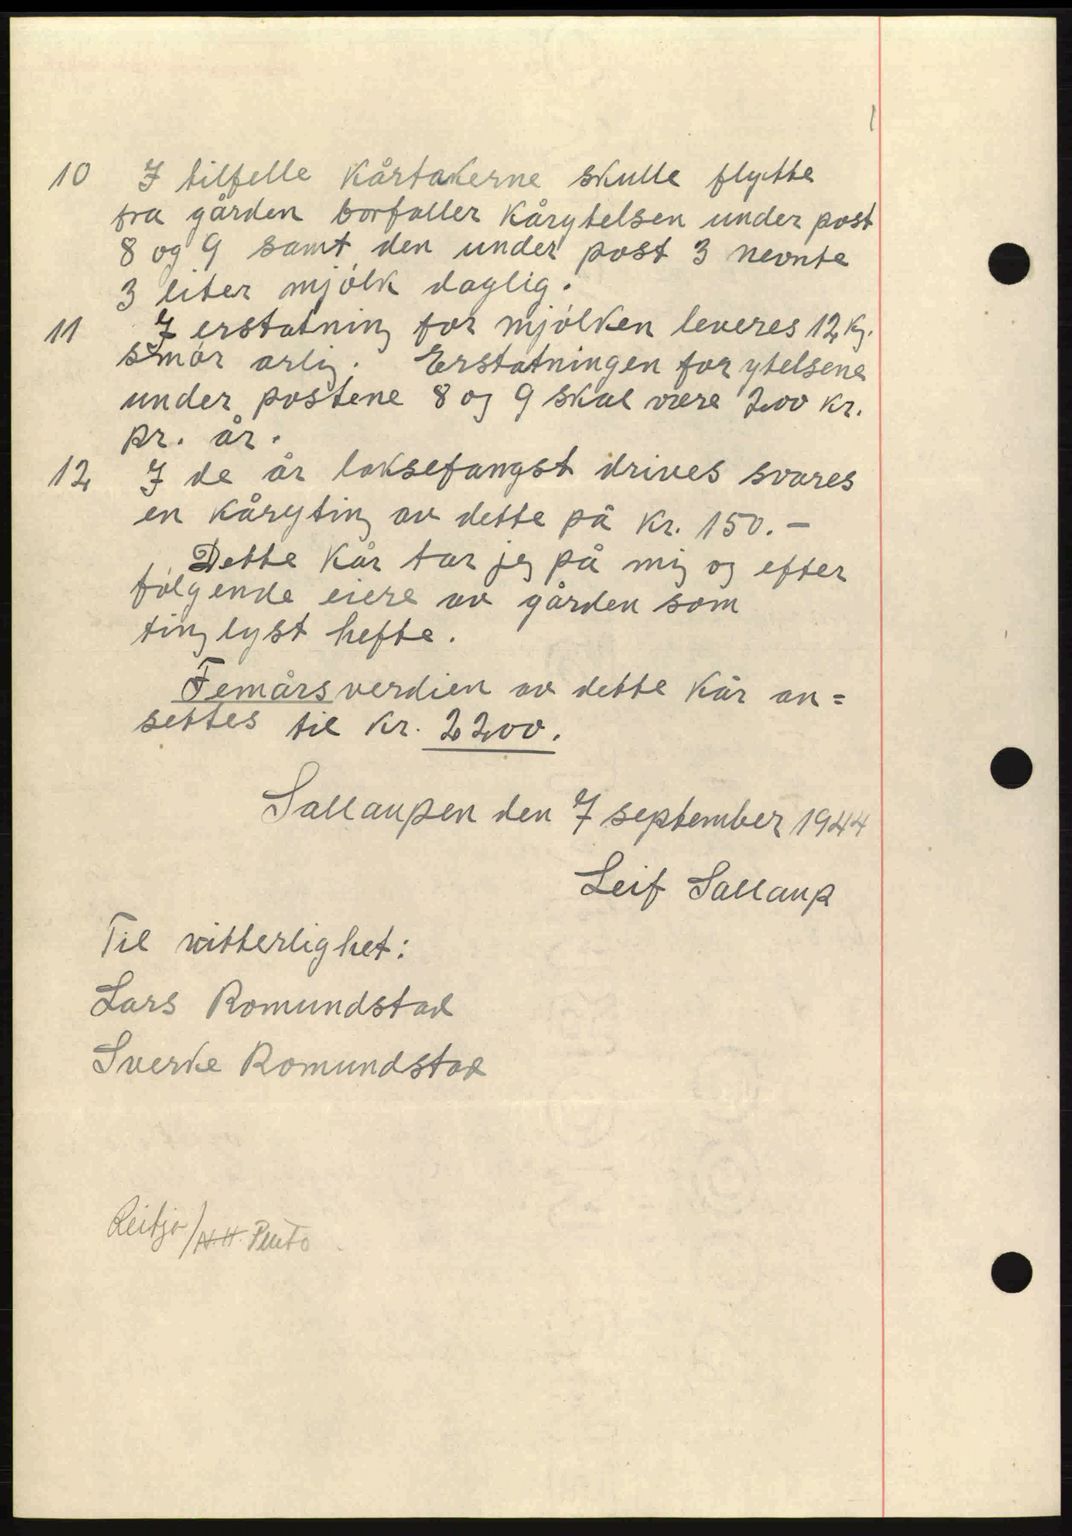 10 I tilfelle kårtakerne skulle flytte
fra gården borfaller kårytelsen under post
8 og 9 samt den under post 3 nevnte
3 liter mjølk daglig.
11 I erstatning for mjølken leveres 12 kg.
smør årlig. Erstatningen for ytelsene
under postene 8 og 9 skal være 200 kr.
pr. år.
12 I de år laksefangst drives svares
en kåryting av dette på kr. 150.-
Dette kår tar jeg på mig og efter
følgende eiere av gården som
tinglyst hefte.
Femårsverdien av dette kår an=
settes til kr. 2200.
Sallaupen den 7 september 1944
Leif Sallaup
Til vitterlighet:
Lars Romundstad
Sverke Romundstad